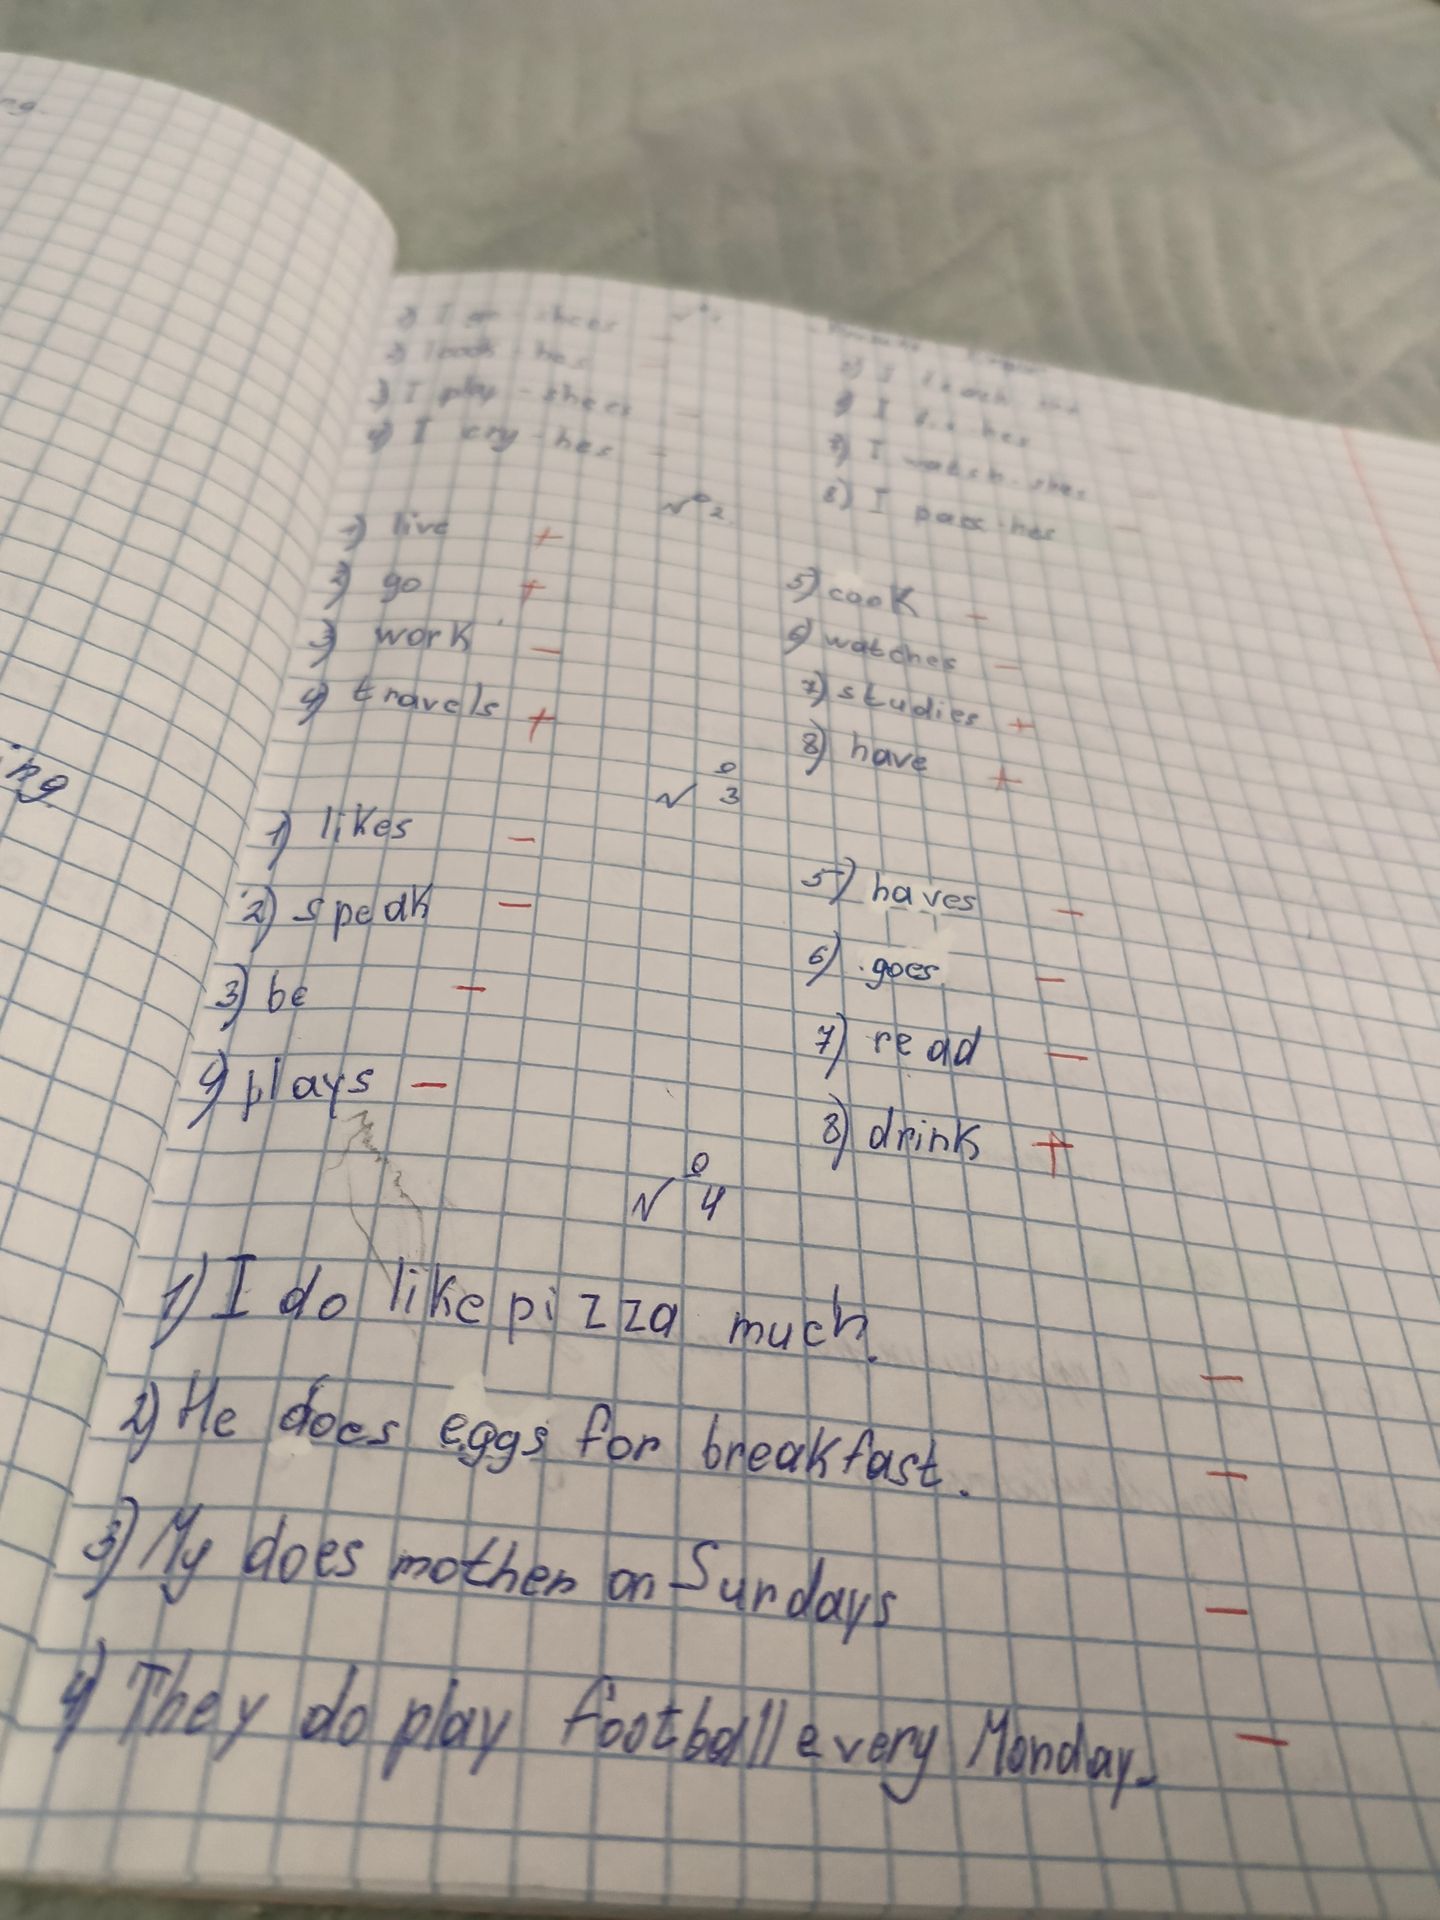 ng.
1) I go - shees -
2) I cook - hes -
3) I play - shees -
4) I cry - hes -
6) I hes -
7) I watch - shes -
8) I pass - hes -
№2
1) live +
2) go +
3) work -
4) travels +
5) cook -
6) watches -
7) studies +
8) have +
ing
№3
1) likes -
2) speak -
3) be -
4) plays -
5) haves -
6) goes -
7) read -
8) drink +
№4
1) I do like pizza much. -
2) He does eggs for breakfast. -
3) My does mother on Sundays -
4) They do play football every Monday. -